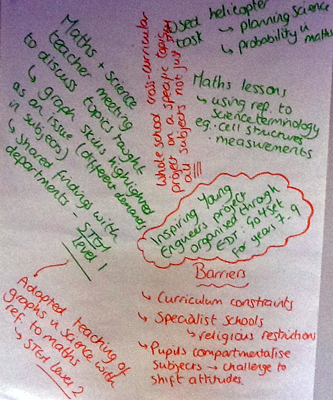 Maths + science
teacher meeting
to discuss
topics taught
↳ graph skills highlighted
as an issue (different demands
in subjects)
↳ shared findings with
departments - STEM
level 1
Whole school cross-curricular
project on a specific topic
all subjects not just
Used helicopter
task
→ planning science
↳ probability in maths
Maths lessons
↳ using ref. to
science terminology
eg. cell structures
measurements
Inspiring Young
Engineers project
organised through
EDT.
for years 7-9
Barriers
↳ Curriculum constraints
↳ Specialist schools
↳ religious restrictions
↳ Pupils compartmentalise
subjects → challenge to
shift attitudes.
Adapted teaching of
graphs in science with
ref. to maths
↳ STEM level 2